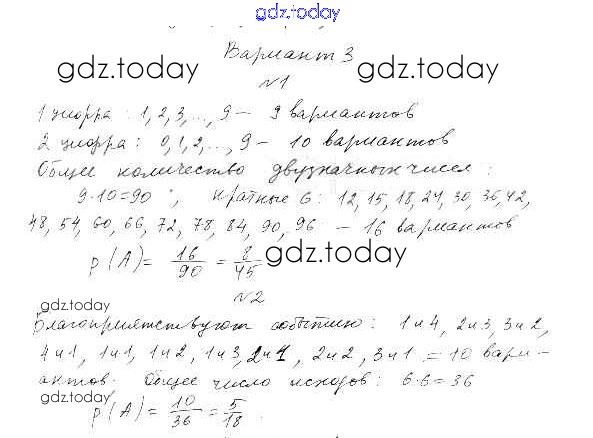 gdz.today
Вариант 3
gdz.today gdz.today
№1
1 цифра : 1, 2, 3, ..., 9 – 9 вариантов
2 цифра : 0, 1, 2, ..., 9 – 10 вариантов
Общее количество двузначных чисел :
9·10=90 ; кратные 6 : 12, 15, 18, 24, 30, 36, 42,
48, 54, 60, 66, 72, 78, 84, 90, 96 – 16 вариантов
p(A) = 16/90 = 8/45 gdz.today
№2
gdz.today
Благоприятствуют событию : 1и4, 2и3, 3и2,
4и1, 1и1, 1и2, 1и3, 2и1, 2и2, 3и1 = 10 вари-
антов. Общее число исходов : 6·6=36
gdz.today
p(A) = 10/36 = 5/18 .